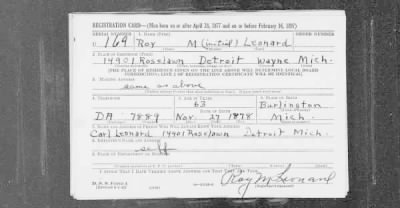 REGISTRATION CARD—(Men born on or after April 28, 1877 and on or before February 16, 1897)
SERIAL NUMBER 1. NAME (Print) ORDER NUMBER
U 169 Roy M (initial) Leonard
2. PLACE OF RESIDENCE (Print)
14901 Roselawn Detroit Wayne Mich.
[THE PLACE OF RESIDENCE GIVEN ON THE LINE ABOVE WILL DETERMINE LOCAL BOARD
JURISDICTION; LINE 2 OF REGISTRATION CERTIFICATE WILL BE IDENTICAL]
3. MAILING ADDRESS
same as above
4. TELEPHONE 5. AGE IN YEARS 6. PLACE OF BIRTH
63 Burlington
DATE OF BIRTH
DA 7889 Nov. 27 1878 Mich.
7. NAME AND ADDRESS OF PERSON WHO WILL ALWAYS KNOW YOUR ADDRESS
Carl Leonard 14901 Roselawn Detroit Mich.
8. EMPLOYER'S NAME AND ADDRESS
self
9. PLACE OF EMPLOYMENT OR BUSINESS
I AFFIRM THAT I HAVE VERIFIED ABOVE ANSWERS AND THAT THEY ARE TRUE.
D. S. S. Form 1
Roy M Leonard